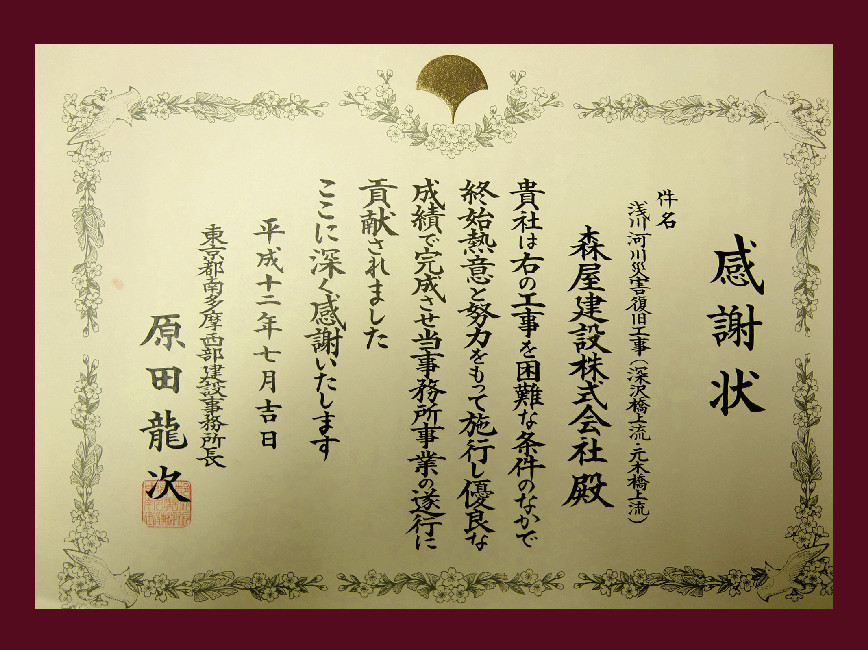 感謝状
件名
浅川河川災害復旧工事(深沢橋上流・元木橋上流)
森屋建設株式会社殿
貴社は右の工事を困難な条件のなかで
終始熱意と努力をもって施行し優良な
成績で完成させ当事務所事業の遂行に
貢献されました
ここに深く感謝いたします
平成十二年七月吉日
東京都南多摩西部建設事務所長
原田龍次